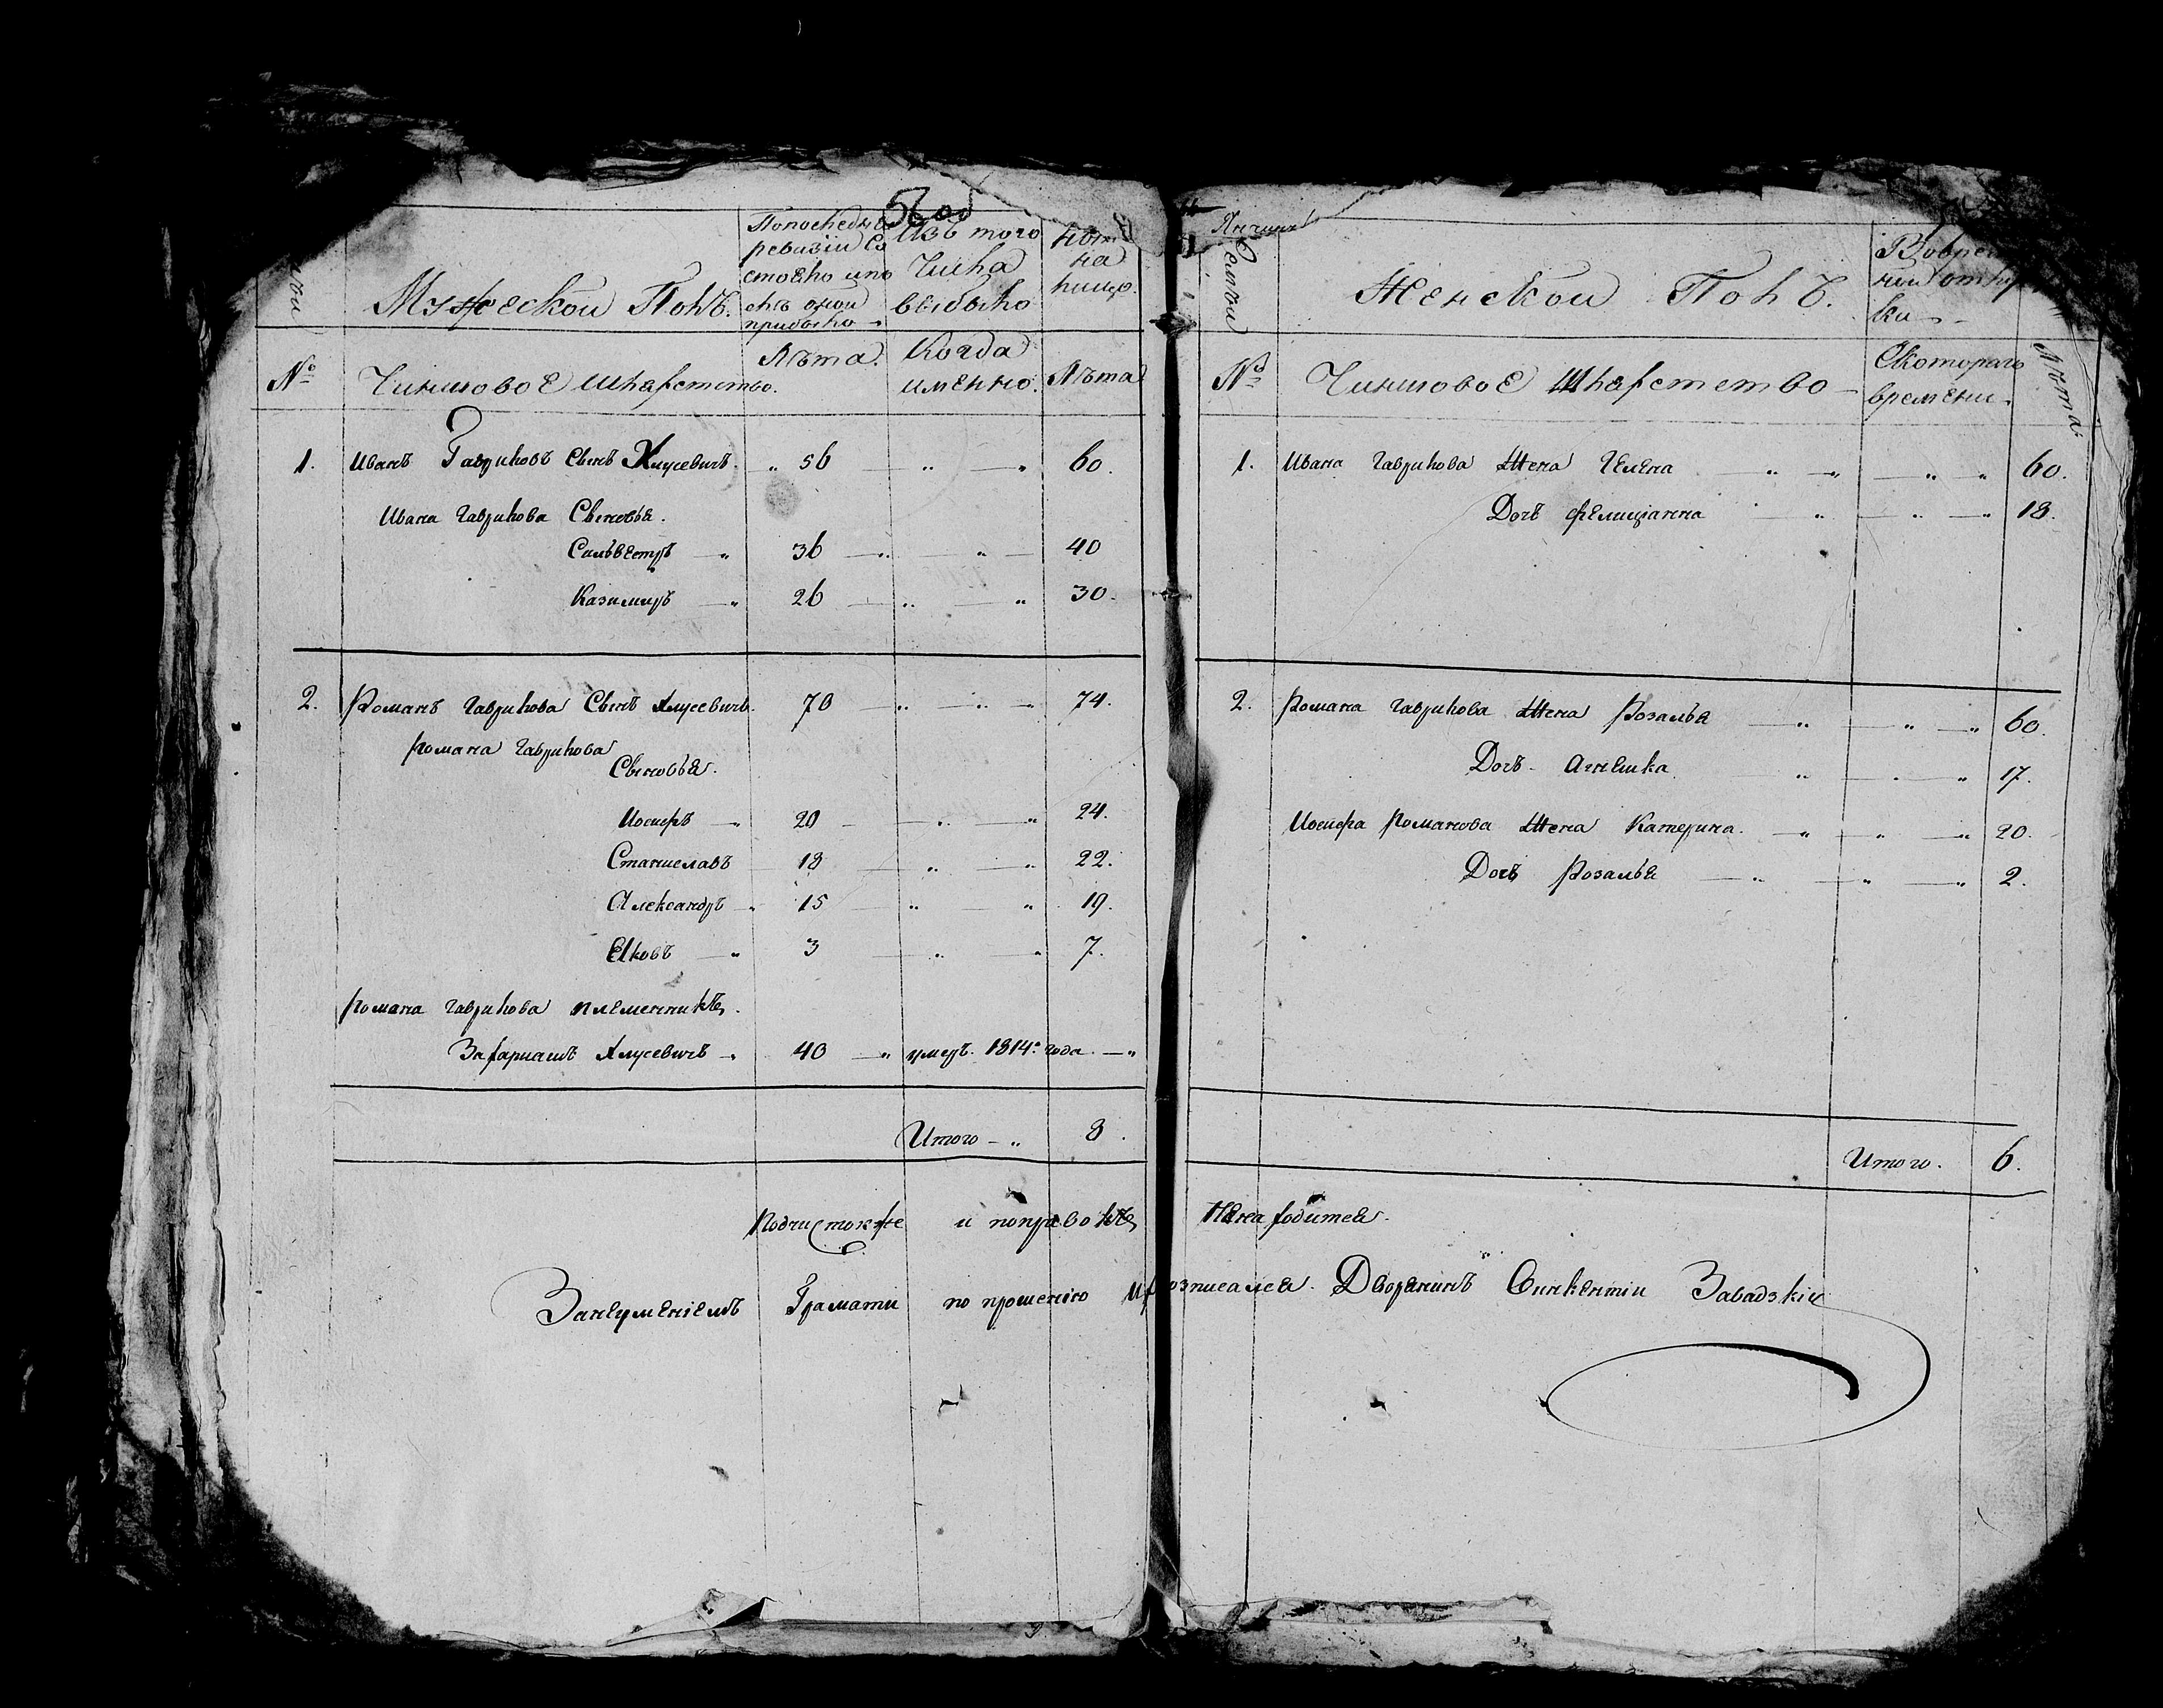 560д
Мужескои Полъ.
По последнеи
ревизии со
стояло и по
слъ онои
прибыло
Изъ того
числа
выбыло
Ныне
на
лицо.
№
Чиншовое Шляхетство.
Лъта.
Когда
именно.
Лъта
1. Иванъ Гавриловъ сынъ Хлусевичъ. 56 60.
Ивана Гаврилова Сыновья.
Сильвестръ 36 40
Казимиръ 26 30.
2. Романъ Гаврилова Сынъ Хлусевичъ. 70 74.
Романа Гаврилова
Сыновья.
Иосифъ 20 24.
Станиславъ 18 22.
Александръ 15 19.
Яковъ 3 7.
Романа Гаврилова племенникъ.
Захариашъ Хлусевичъ 40 умеръ. 1814: года.
Итого 8.
Семьи
Женскои Полъ.
Во времен
нои отлу
ки
№
Чиншовое Шляхетство
С котораго
времени.
Лъта:
1. Ивана Гаврилова Жена Гелена 60.
Дочь Фелицианна 18.
2. Романа Гаврилова Жена Розалья 60.
Дочь Агнешка 17.
Иосифа Романова Жена Катерина. 20.
Дочь Розалья 2.
Итого. 6.
Подчистокже и поправокъ Ненаходится.
Занеумениемъ Грамати по прошению Ихъ розписался. Дворянинъ Винкентии Завадзкии